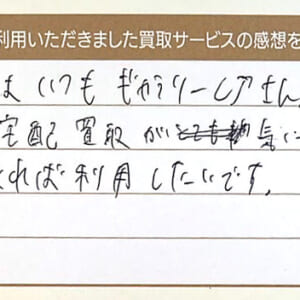 利用いただきました買取サービスの感想を
はいつもギャラリーレアさん
宅配買取が気に
くれば利用したいです。